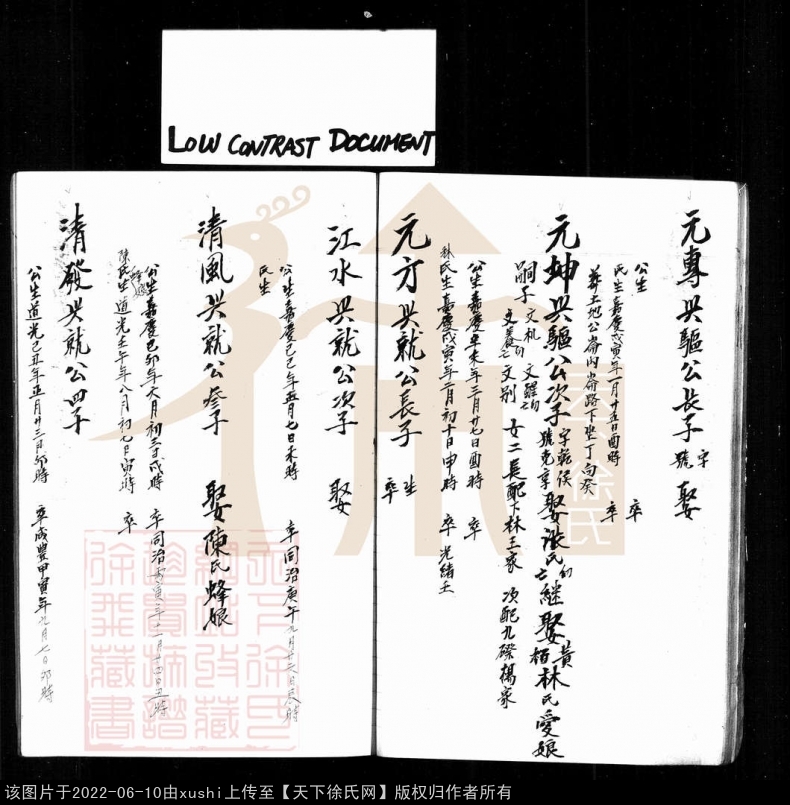 LOW CONTRAST DOCUMENT
元專 兴驅公長子 字 號 娶
公生 卒
氏生嘉慶戊寅年一月十五日酉時 卒
葬土地公崙內崙路下坐丁向癸
元坤 兴驅公次子 字乾侯 號克享 娶張氏 継娶黃栢林氏愛娘
嗣子 文机 文羅 文養 文别 女二長配下林王家 次配九磜楊家
公生嘉慶辛未年三月廿七日酉時 卒
林氏生嘉慶戊寅年二月初十日申時 卒光緒壬
元方 兴就公長子 生 卒
江水 兴就公次子 娶
公生嘉慶己巳年五月七日未時 卒同治庚午九月廿二日辰時
氏生
清風 兴就公叁子 娶陳氏蜂娘
公生嘉慶己卯年六月初三日戌時 卒同治丙寅年十一月十六日丑時
陳氏蜂娘生道光壬午年八月初七日寅時 卒
清發 兴就公四子
公生道光己丑年正月廿三日卯時 卒咸豐甲寅年九月七日卯時
徐氏
该图片于2022-06-10由xushi上传至【天下徐氏网】版权归作者所有